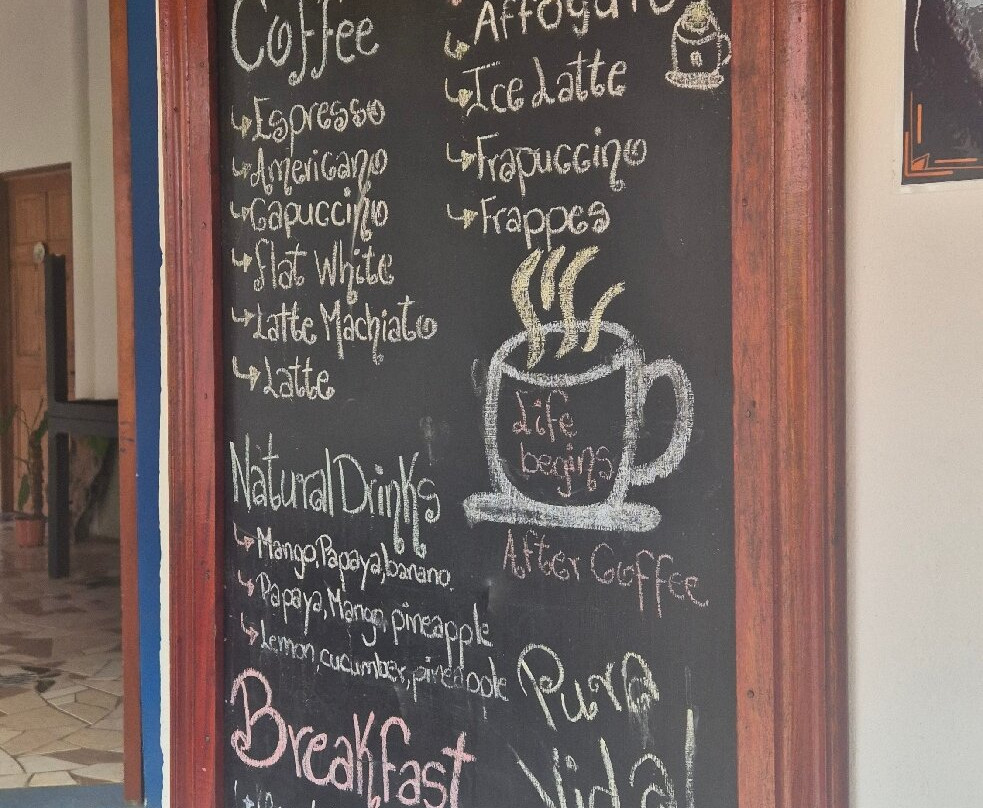 Coffee
Espresso
Americano
Capuccino
flat White
Latte Machiato
Latte
Affogato
Ice Latte
Frapuccino
Frappes
Life
begins
After Coffee
Natural Drinks
Mango, Papaya, banano
Papaya, Mango, pineapple
Lemon, cucumber, pineapple
Pura
Vida!
Breakfast